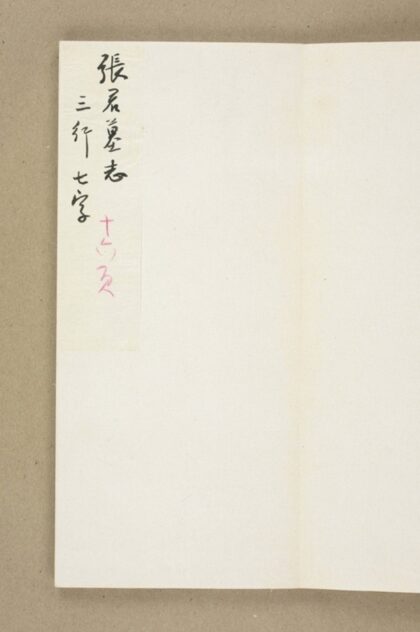 張君墓志
三行七字
十六頁